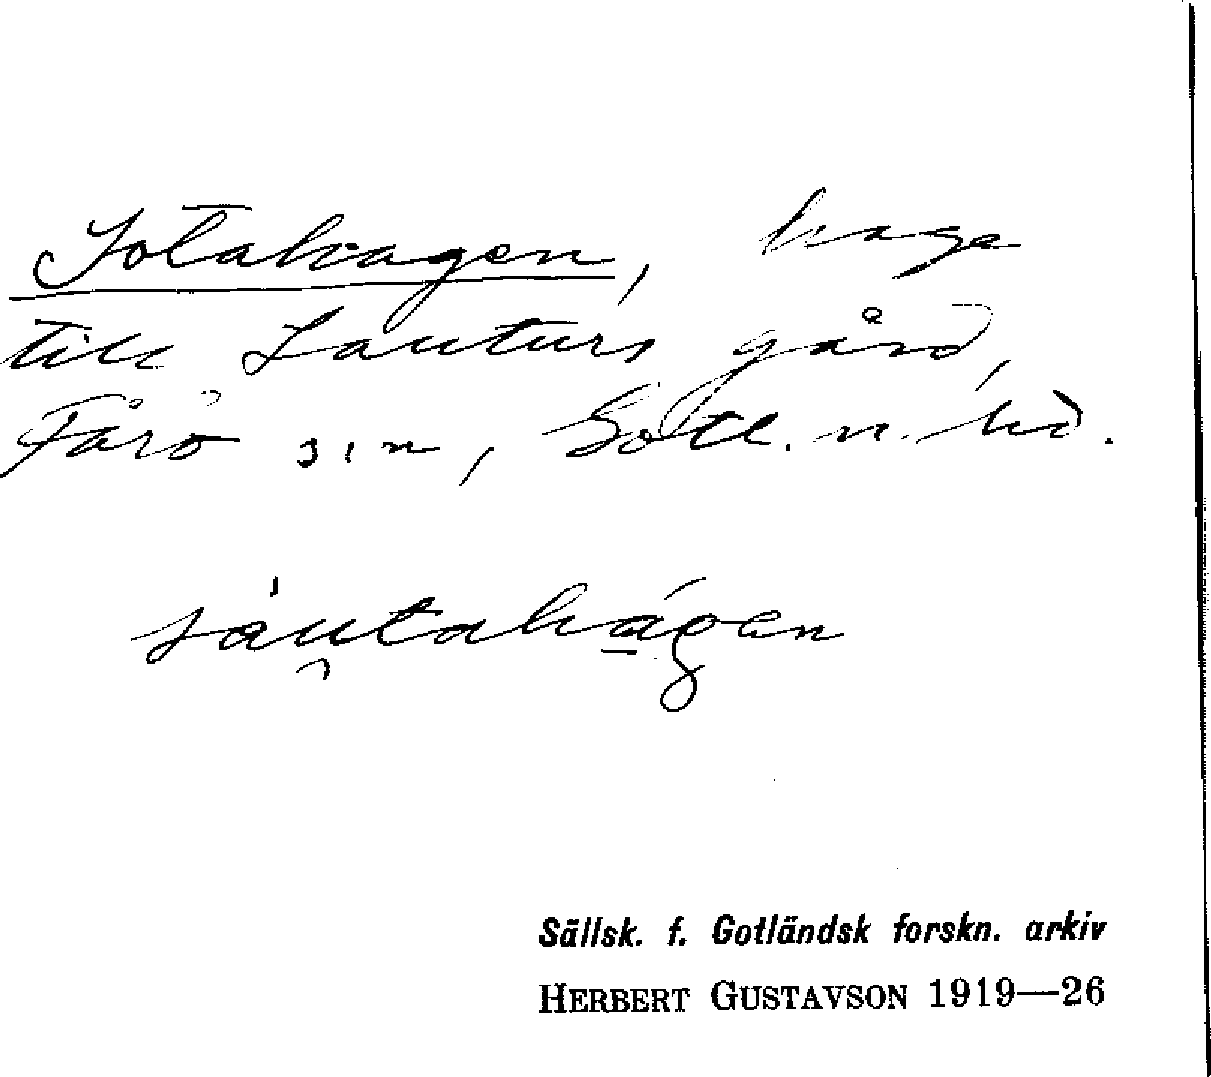 Sotahagen, hage
till Lauturs gård,
Fårö sn, Gotl. n. hd.
sáutahágen
Sällsk. f. Gotländsk forskn. arkiv
HERBERT GUSTAVSON 1919—26